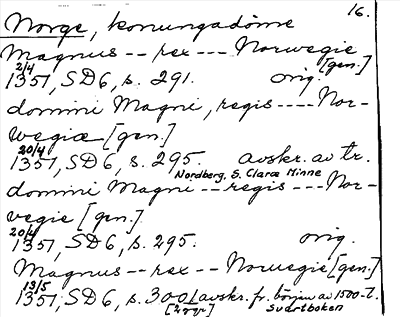 16.
Norge, konungadöme
Magnus -- rex --- Norwegie
2/4 [gen.]
1351, SD6, s. 291. orig.
domini Magni, regis ---- Nor-
wegiæ [gen.]
20/4
1351, SD6, s. 295. avskr. av tr.
Nordberg, S. Claræ Minne
domini Magni -- regis --- Nor-
vegie [gen.]
20/4
1351, SD6, s. 295. orig.
Magnus -- rex -- Noruegie [gen.]
13/5
1351, SD6, s. 300 avskr. fr. början av 1500-t.
[2 ggr] Svartboken